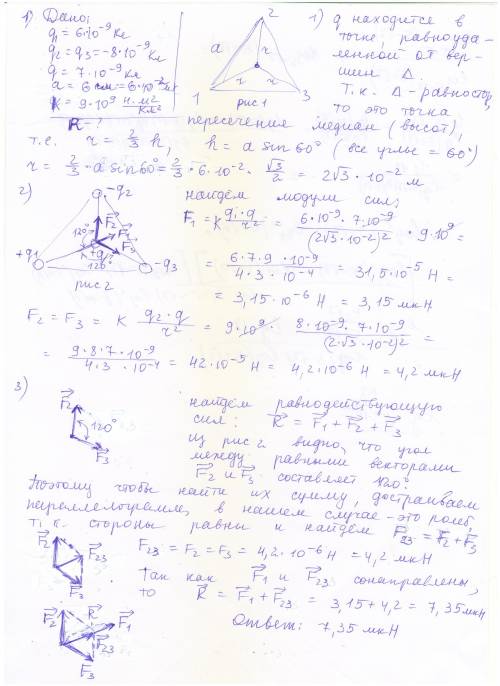 1) Дано:
q₁ = 6·10⁻⁹ Кл
q₂ = q₃ = -8·10⁻⁹ Кл
q = 7·10⁻⁹ Кл
a = 6 см = 6·10⁻² м
K = 9·10⁹ Н·м²/Кл²
R - ?
2
a
r
r
r
1
3
рис 1
1) q находится в
точке, равноуда-
ленной от вер-
шин Δ.
Т.к. Δ-равностор,
то это точка
пересечения медиан (высот),
т.е. r = 2/3 h, h = a sin 60° (все углы = 60°)
r = 2/3 · a sin 60° = 2/3 · 6·10⁻² · √3/2 = 2√3 · 10⁻² м
2)
-q₂
F₂
F₁
F₃
120°
+q
120°
+q₁
-q₃
рис 2
найдём модули сил;
F₁ = K q₁·q/r² = 6·10⁻⁹·7·10⁻⁹/(2√3·10⁻²)² · 9·10⁹ =
= 6·7·9·10⁻⁹/4·3·10⁻⁴ = 31,5·10⁻⁵ Н =
= 3,15·10⁻⁶ Н = 3,15 мкН
F₂ = F₃ = K q₂·q/r² = 9·10⁹ · 8·10⁻⁹·7·10⁻⁹/(2√3·10⁻²)² =
= 9·8·7·10⁻⁹/4·3·10⁻⁴ = 42·10⁻⁵ Н = 4,2·10⁻⁶ Н = 4,2 мкН
3)
F₂
120°
F₃
найдём равнодействующую
сил: R = F₁ + F₂ + F₃
из рис 2 видно, что угол
между равными векторами
F₂ и F₃ составляет 120°
Поэтому чтобы найти их сумму, достраиваем
параллелограмм, в нашем случае - это ромб,
т.к. стороны равны и найдём F₂₃ = F₂ + F₃
F₂
F₂₃
F₃
F₂₃ = F₂ = F₃ = 4,2·10⁻⁶ Н = 4,2 мкН
Так как F₁ и F₂₃ сонаправлены,
то R = F₁ + F₂₃ = 3,15 + 4,2 = 7,35 мкН
F₂
R
F₁
F₂₃
F₃
Ответ: 7,35 мкН